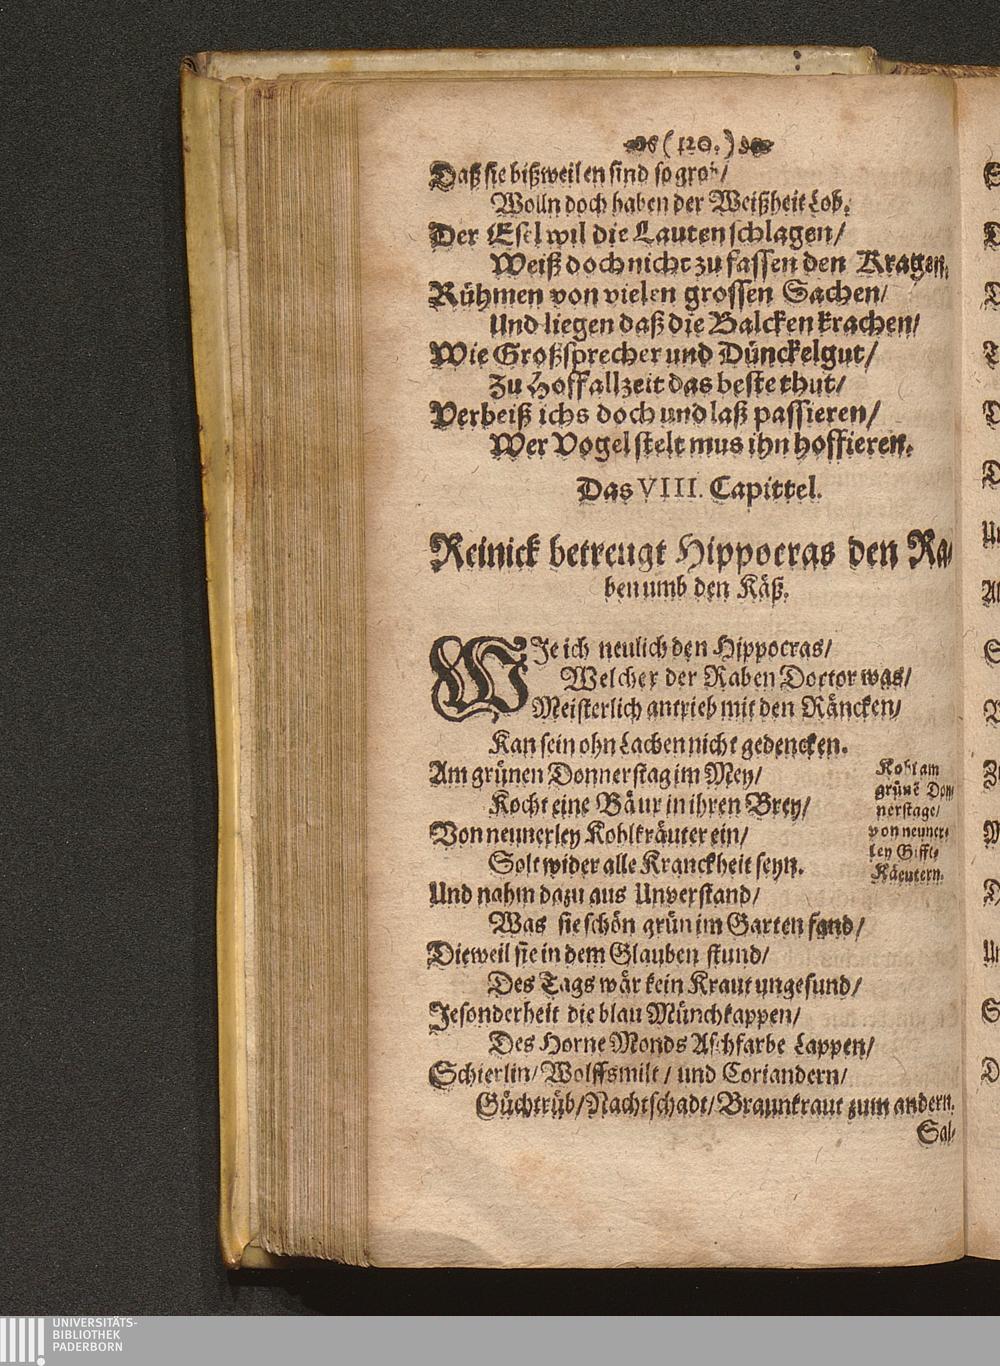 (120.)
Daß sie bißweilen sind so grob/
Wolln doch haben der Weißheit Lob.
Der Esel wil die Lauten schlagen/
Weiß doch nicht zu fassen den Kragen,
Rühmen von vielen grossen Sachen/
Und liegen daß die Balcken krachen/
Wie Großsprecher und Dünckelgut/
Zu Hoff allzeit das beste thut/
Verbeiß ichs doch und laß passieren/
Wer Vogel stelt mus ihn hoffieren.
Das VIII. Capittel.
Reinick betreugt Hippocras den Ra-
ben umb den Käß.
WJe ich neulich den Hippocras/
Welcher der Raben Doctor was/
Meisterlich antrieb mit den Räncken/
Kan sein ohn Lachen nicht gedencken.
Am grünen Donnerstag im Mey/
Kocht eine Bäur in ihren Brey/
Von neunerley Kohlkräuter ein/
Solt wider alle Kranckheit seyn.
Kohl am
grünē Don-
nerstage/
von neuner-
ley Gifft-
Käeutern.
Und nahm dazu aus Unverstand/
Was sie schön grün im Garten fand/
Dieweil sie in dem Glauben stund/
Des Tags wär kein Kraut ungesund/
Jesonderheit die blau Münchkappen/
Des Horne Monds Aschfarbe Lappen/
Schierlin/ Wolffsmilt/ und Coriandern/
Güchtrüb/ Nachtschadt/ Braunkraut zum andern.
Sal-
UNIVERSITÄTS-
BIBLIOTHEK
PADERBORN